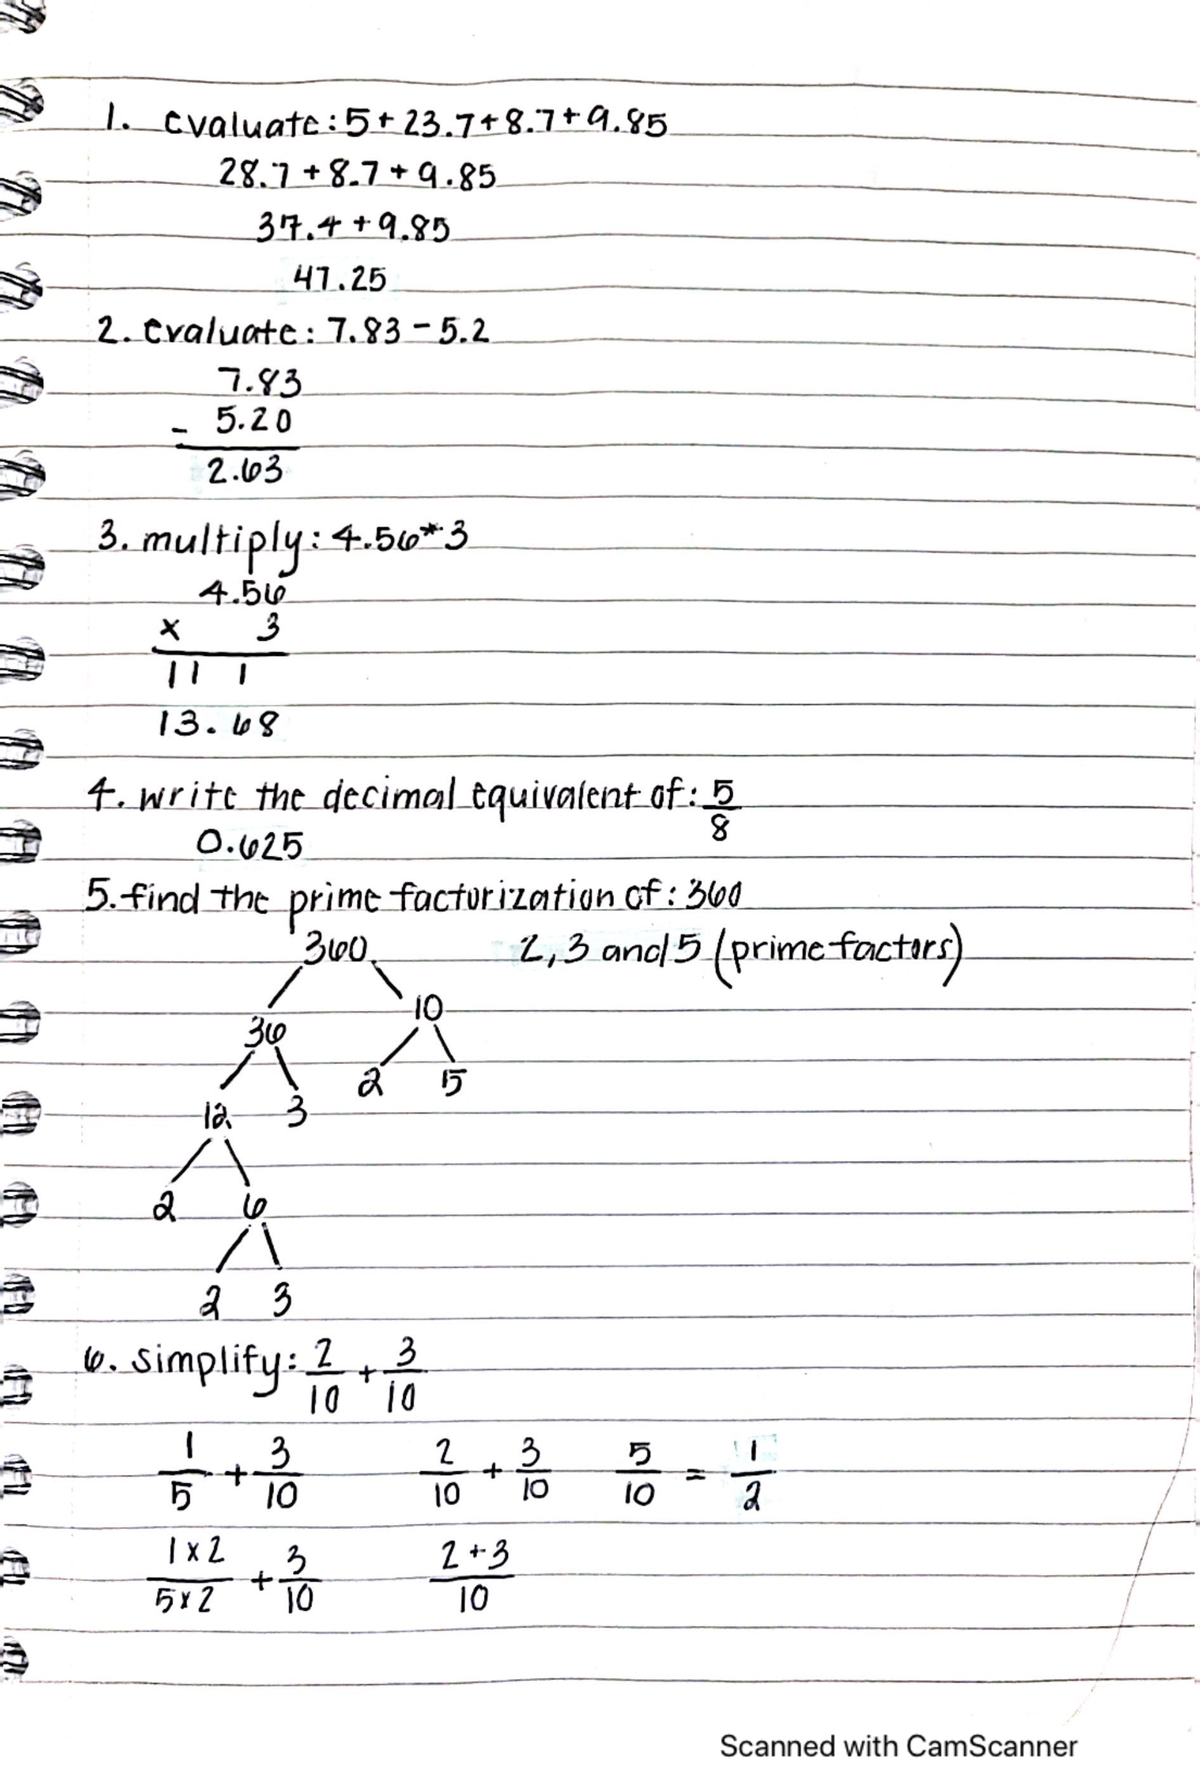 1. evaluate: 5 + 23.7 + 8.7 + 9.85
28.7 + 8.7 + 9.85
37.4 + 9.85
47.25
2. evaluate: 7.83 - 5.2
7.83
- 5.20
2.63
3. multiply: 4.56 * 3
4.56
x 3
11 1
13.68
4. write the decimal equivalent of: 5/8
0.625
5. find the prime factorization of: 360
360 2, 3 and 5 (prime factors)
36 10
12 3 2 5
2 6
2 3
6. simplify: 2/10 + 3/10
1/5 + 3/10 2/10 + 3/10 5/10 = 1/2
1 x 2/5 x 2 + 3/10 2 + 3/10
Scanned with CamScanner